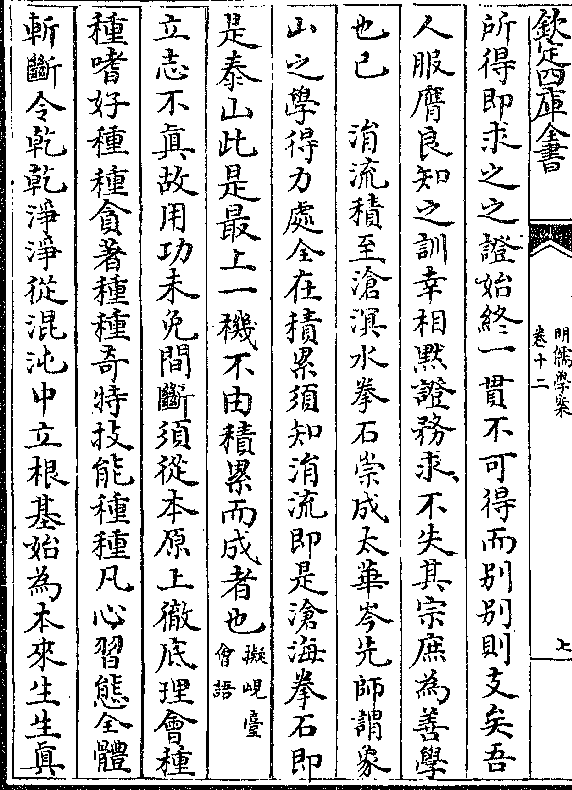 欽定四庫全書
明儒學案
卷十二
七
所得即求之之證始終一貫不可得而別別則支矣吾
人服膺良知之訓幸相黙證務求不失其宗庶為善學
也已　涓流積至滄溟水拳石崇成太華岑先師謂象
山之學得力處全在積累須知涓流即是滄海拳石即
是泰山此是最上一機不由積累而成者也擬峴臺會語
立志不真故用功未免間斷須從本原上徹底理會種
種嗜好種種貪著種種奇特技能種種凡心習態全體
斬斷令乾乾淨淨從混沌中立根基始為本來生生真